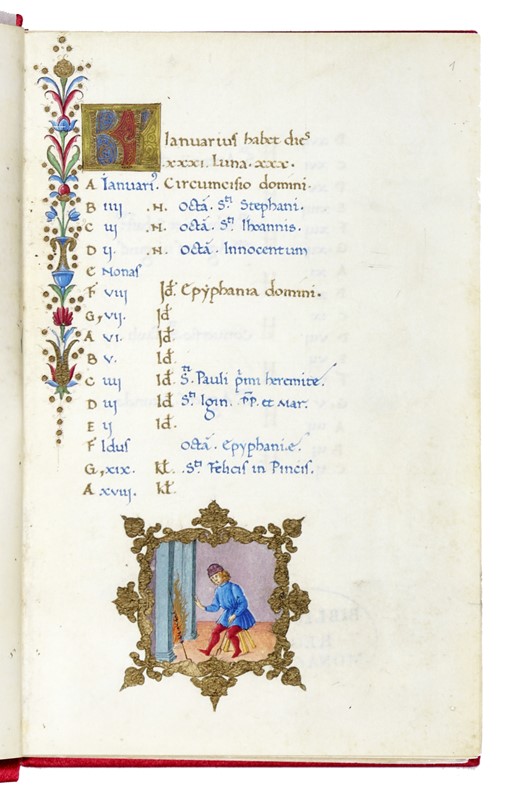 1
KL Ianuarius habet dies
xxxi. Luna. xxx.
A Ianuarī. Circumcisio domini.
B iiij .N. Octā. Sti Stephani.
C iij .N. Octā. Sti Ihoannis.
D ij. .N. Octā. Innocentum
E Nonas
F viij Id. Epyphania domini.
G, vij. Id
A vi. Id
B v. Id.
C iiij Id. Sti Pauli p̄mi heremite.
D iij Id. Sti Igin. P̄P. et Mar.
E ij Id.
F Idus Octā. Epyphanie.
G, xix. Kl. Sti Felicis in Pincis.
A xviij Kl.